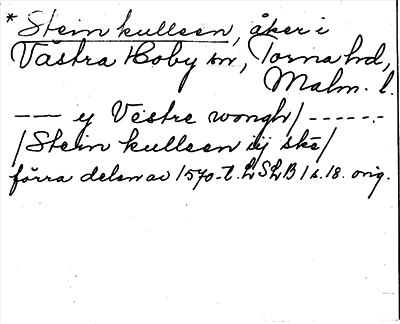 * Stein kulleen, åker i
Västra Hoby sn, Torna hd,
Malm. l.
— — y Vestre wongh/ - - - - - . -
/Stein kulleen iij ske/
förra delen av 1570-t. LSLB 1 s. 18. orig.